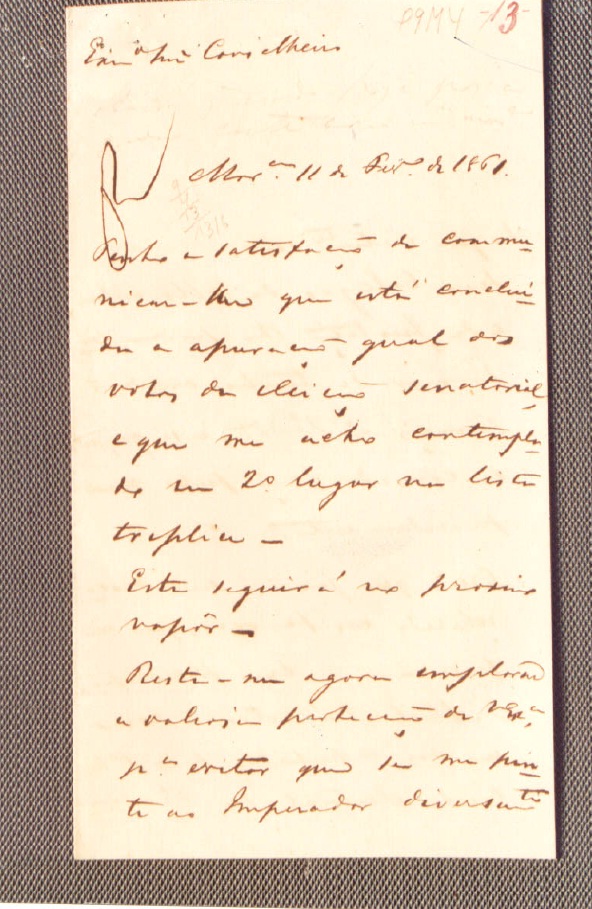 P9M4 -13-
Exmo Snr Conselheiro
Maram 11 de Fevro de 1861.
Tenho a satisfação de commu-
nicar-lhe que está conclui-
da a apuração geral dos
votos da eleição senatorial,
e que me acho contempla-
do em 2o lugar na lista
triplice -
Esta seguirá no proximo
vapôr -
Resta-me agora implorar
a valiosa protecção de V Exa,
pa evitar que se me pin-
te ao Imperador diversamte